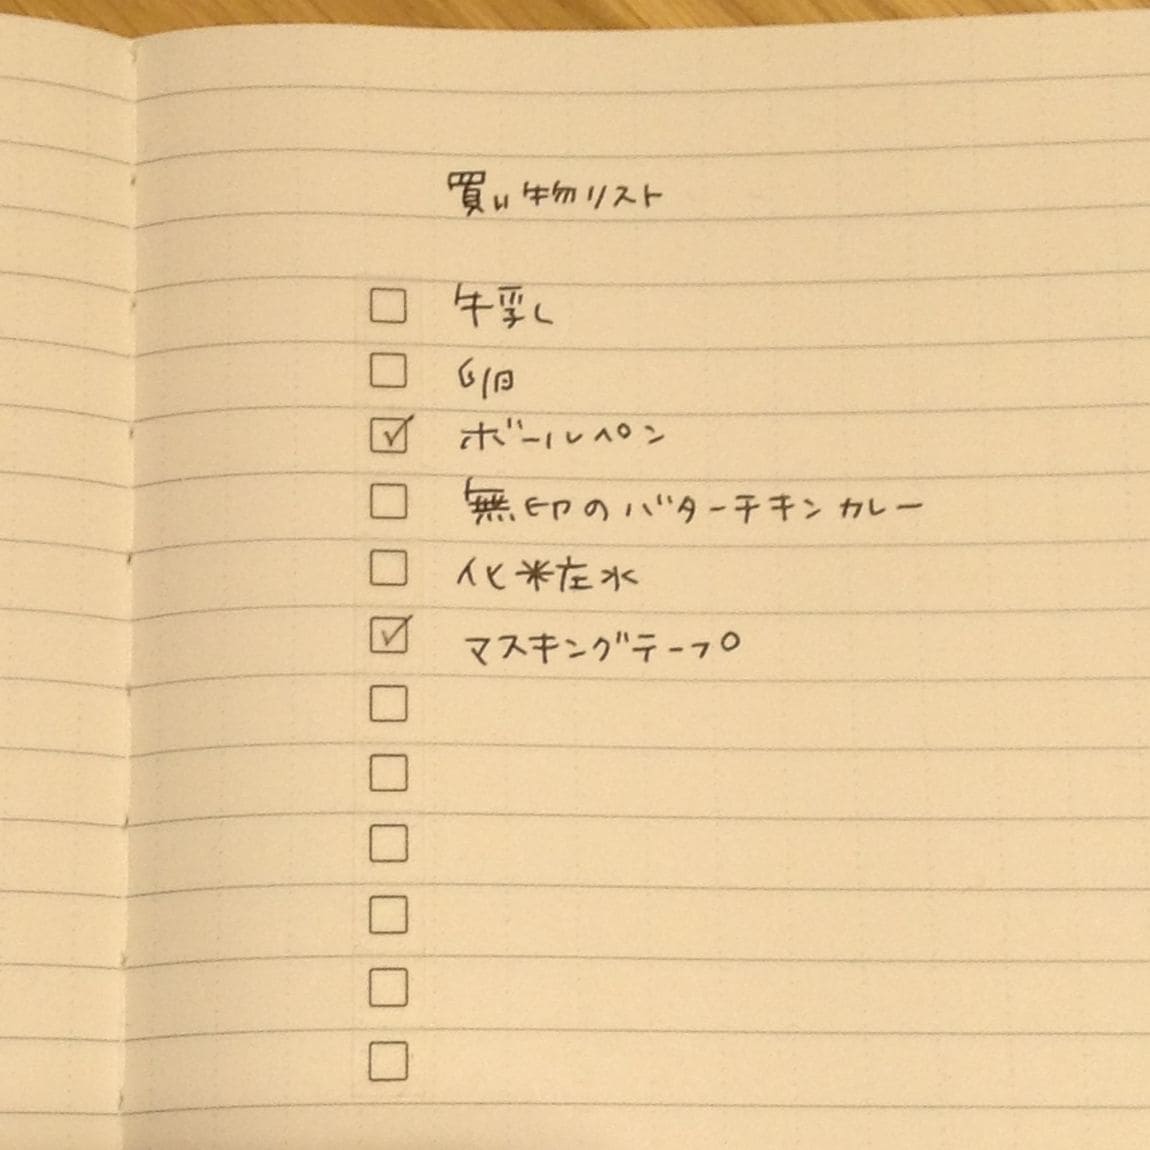 買い物リスト
牛乳
卵
ボールペン
無印のバターチキンカレー
化粧水
マスキングテープ